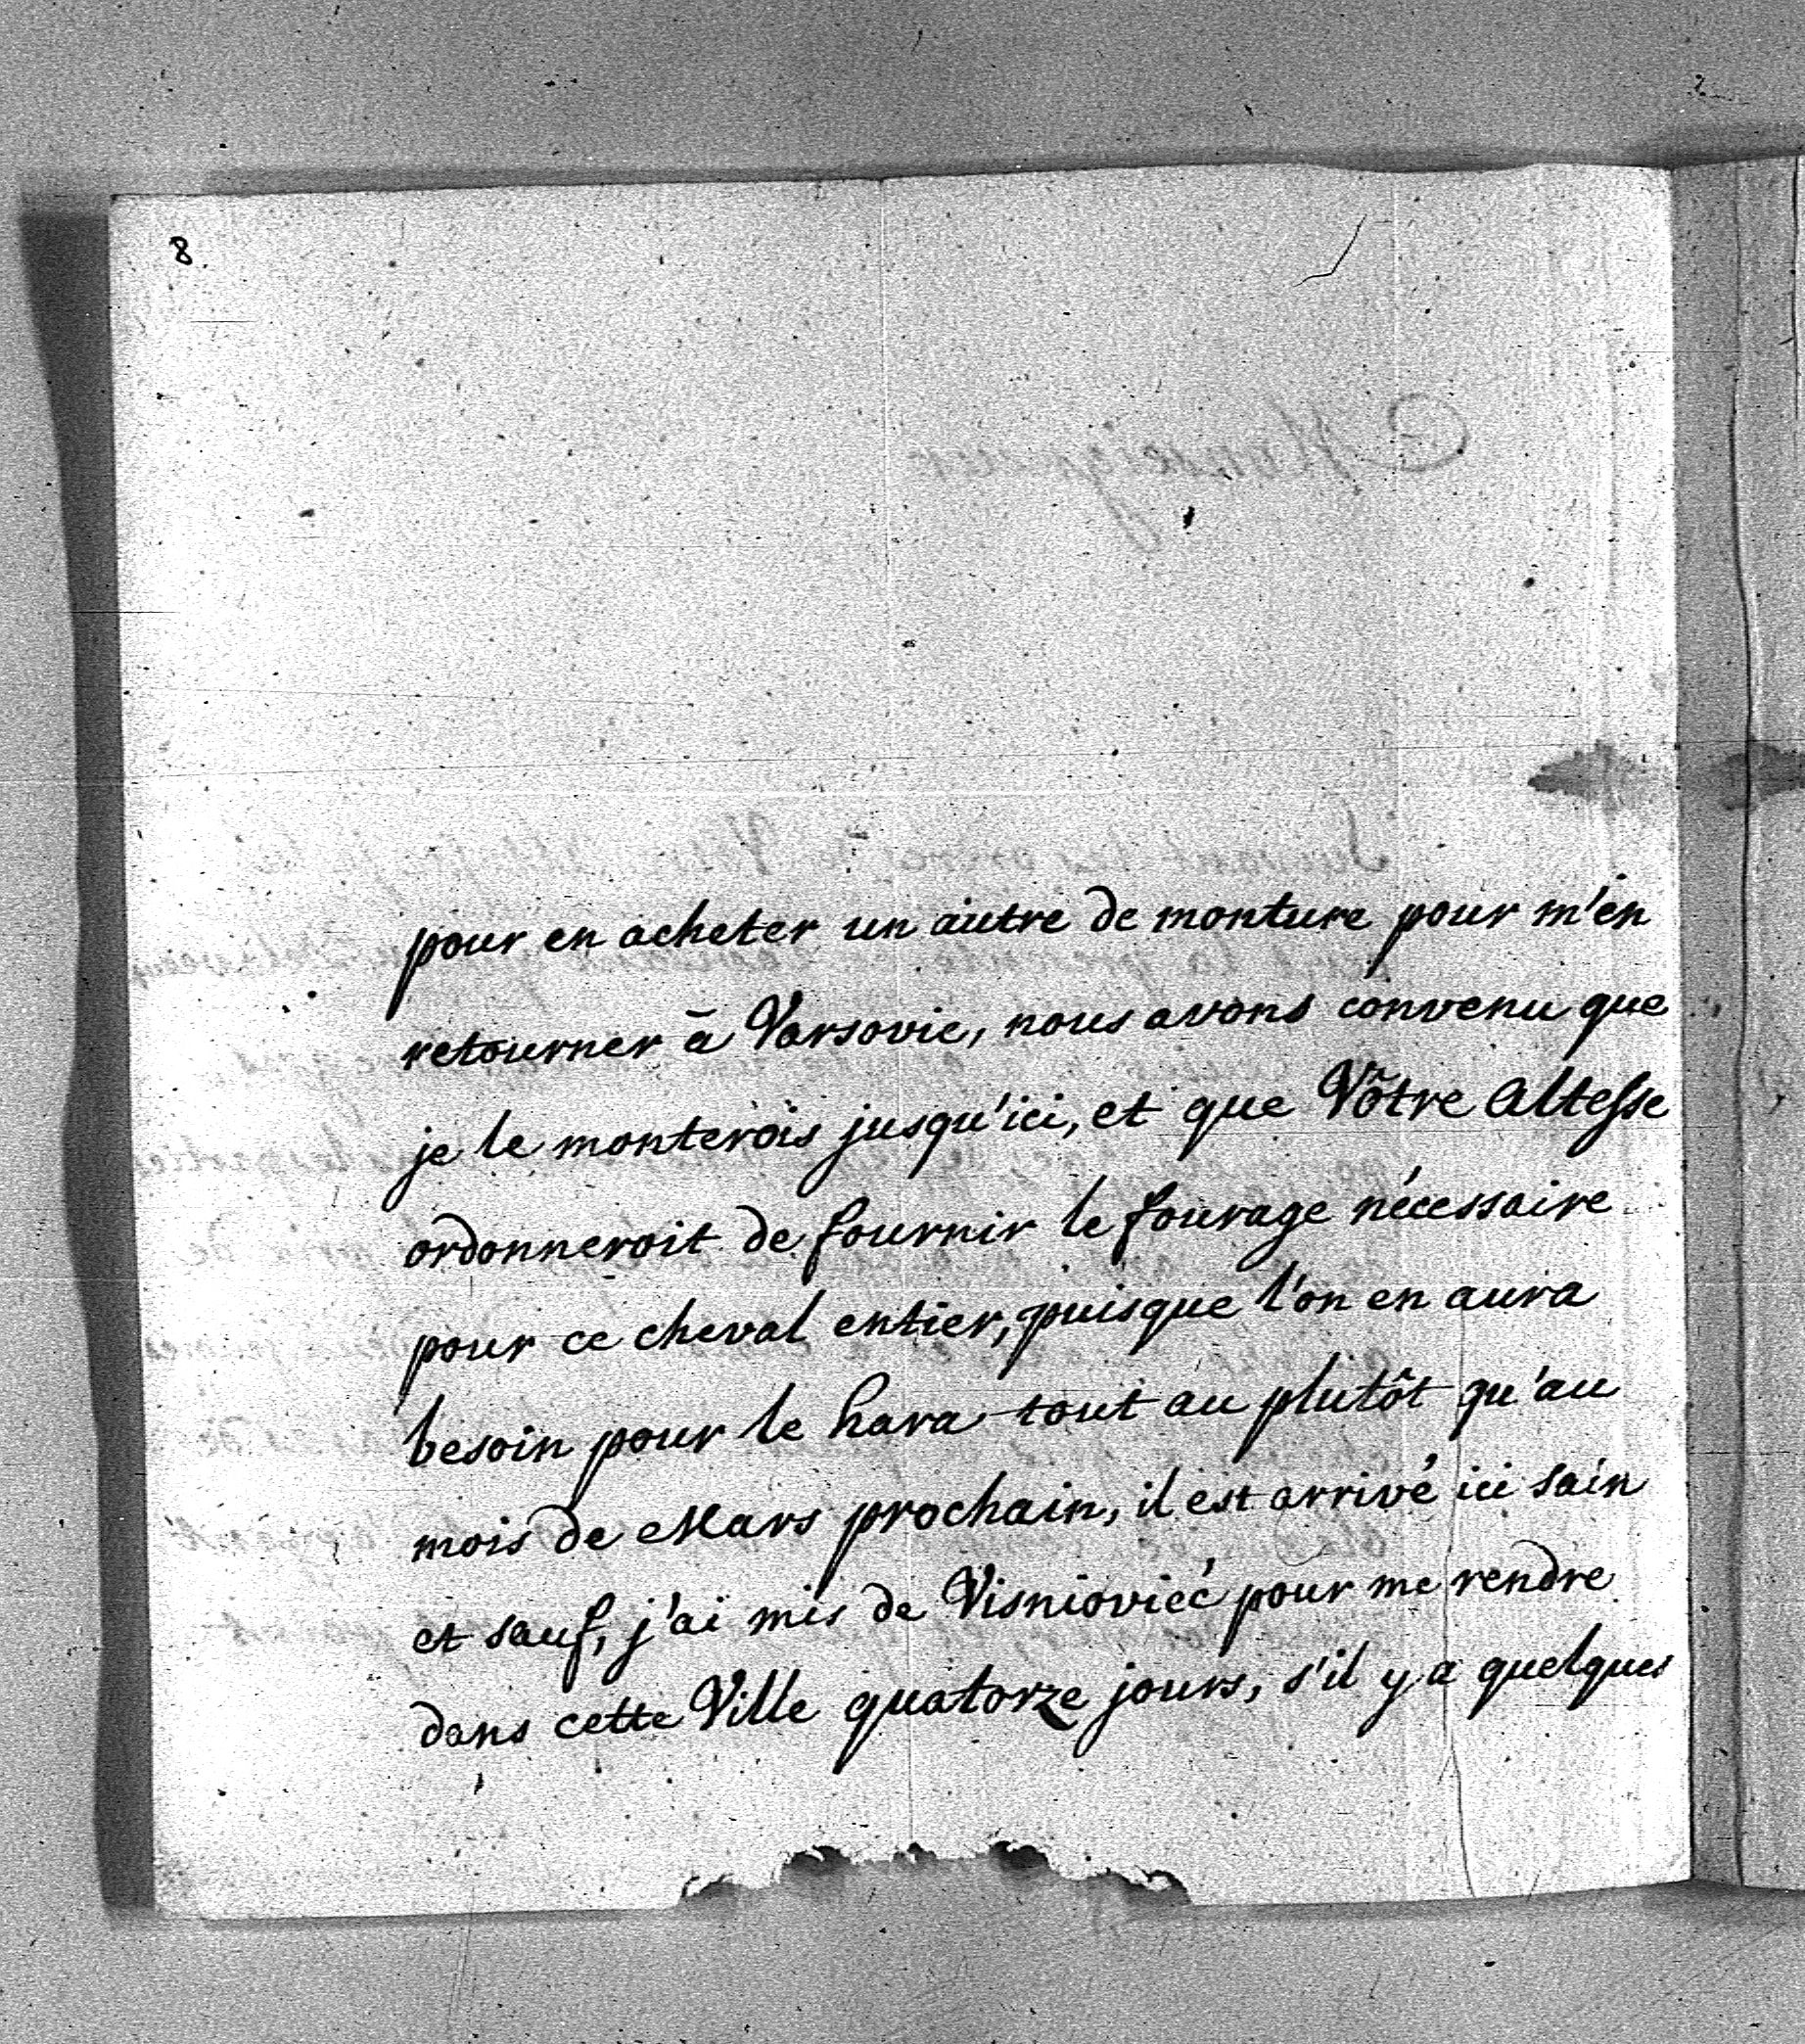 8.
pour en acheter un autre de monture pour m'en
retourner à Varsovie, nous avons convenu que
je le monterois jusqu'ici, et que Vôtre Altesse
ordonneroit de fournir le fourage nécessaire
pour ce cheval entier, puisque l'on en aura
besoin pour le hara tout au plutôt qu'au
mois de Mars prochain, il est arrivé ici sain
et sauf, j'ai mis de Visnioviéc pour me rendre
dans cette Ville quatorze jours, s'il y a quelques